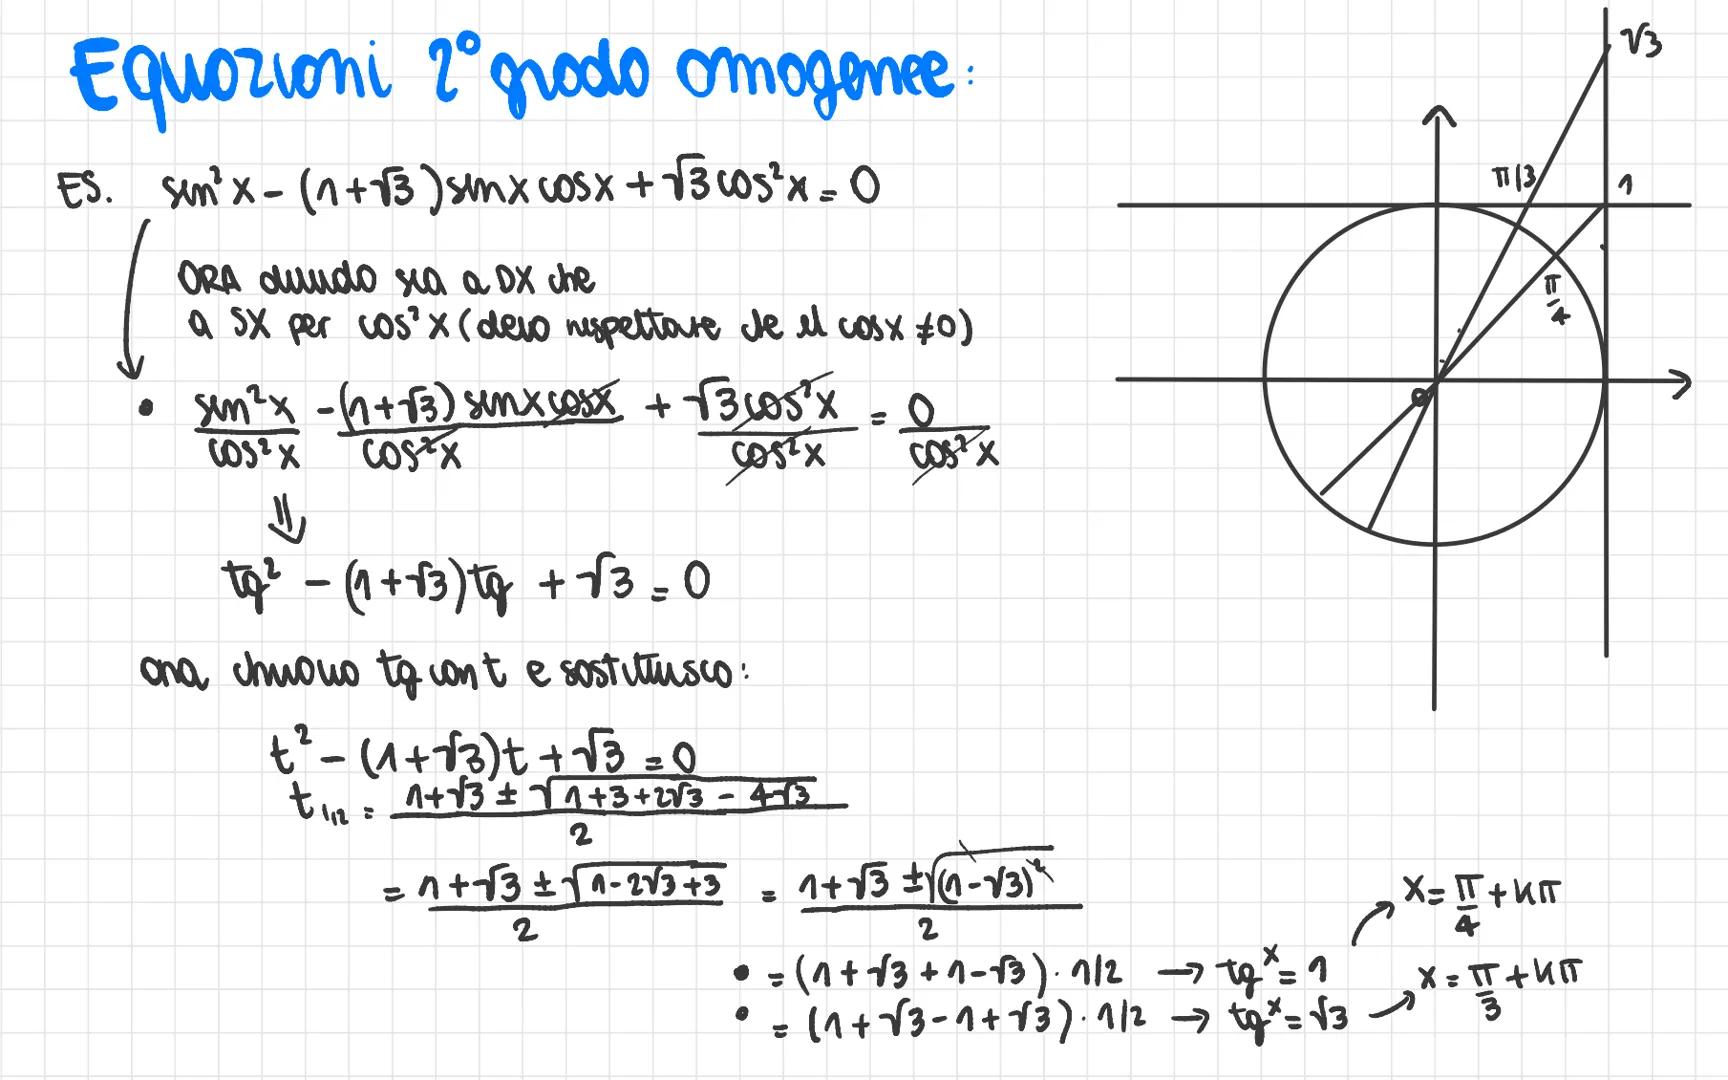 Equazioni 2° grado omogenee:
ES. sin²x - (1+√3) sinx cosx + √3 cos²x = 0
ORA divido sia a DX che
a SX per cos²x (devo rispettare che il cosx ≠ 0)
• sin²x/cos²x - (1+√3) sinx cosx/cos²x + √3 cos²x/cos²x = 0/cos²x
⇓
tg² - (1+√3) tg + √3 = 0
ora chiamo tg con t e sostituisco:
t² - (1+√3)t + √3 = 0
t₁,₂ = (1+√3 ± √(1+3+2√3 - 4√3))/2
= (1+√3 ± √(1-2√3+3))/2 = (1+√3 ± √((1-√3)²))/2
• = (1+√3+1-√3) · 1/2 → tgx = 1 → x = π/4 + kπ
• = (1+√3-1+√3) · 1/2 → tgx = √3 → x = π/3 + kπ
√3
π/3
1
π/4
O